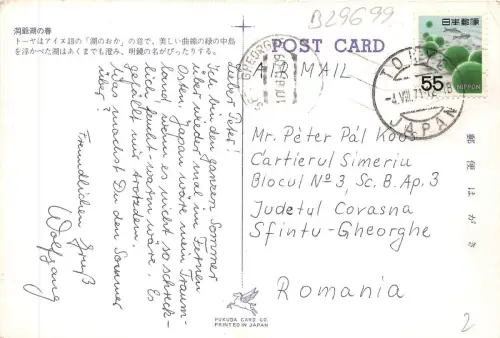 洞爺湖の春
トーヤはアイヌ語の「湖のおか」の意で、美しい曲線の緑の中島
を浮かべた湖はあくまでも澄み、明鏡の名がぴったりする。
B29699
POST CARD
AIR MAIL
日本郵便
55
NIPPON
JAPAN
Lieber Peter!
Ich bin den ganzen Sommer
über wieder mal im Fernen
Osten. Japan wäre mein Traum-
land, wenn es nicht so schreck-
lich feucht-warm wäre. Es
gefällt mir trotzdem.
Was machst Du den Sommer
über?
Freundlichen Gruß
Wolfgang
Mr. Péter Pál Koos
Cartierul Simeriu
Blocul Nº 3, Sc. B. Ap. 3
Judetul Covasna
Sfintu-Gheorghe
Romania
郵便はがき
FUKUDA CARD CO.
PRINTED IN JAPAN
2